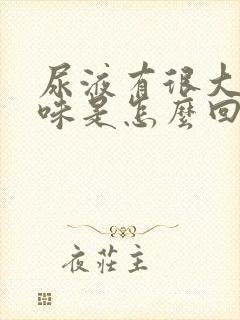 尿液有很大
味是怎麼回
夜莊主